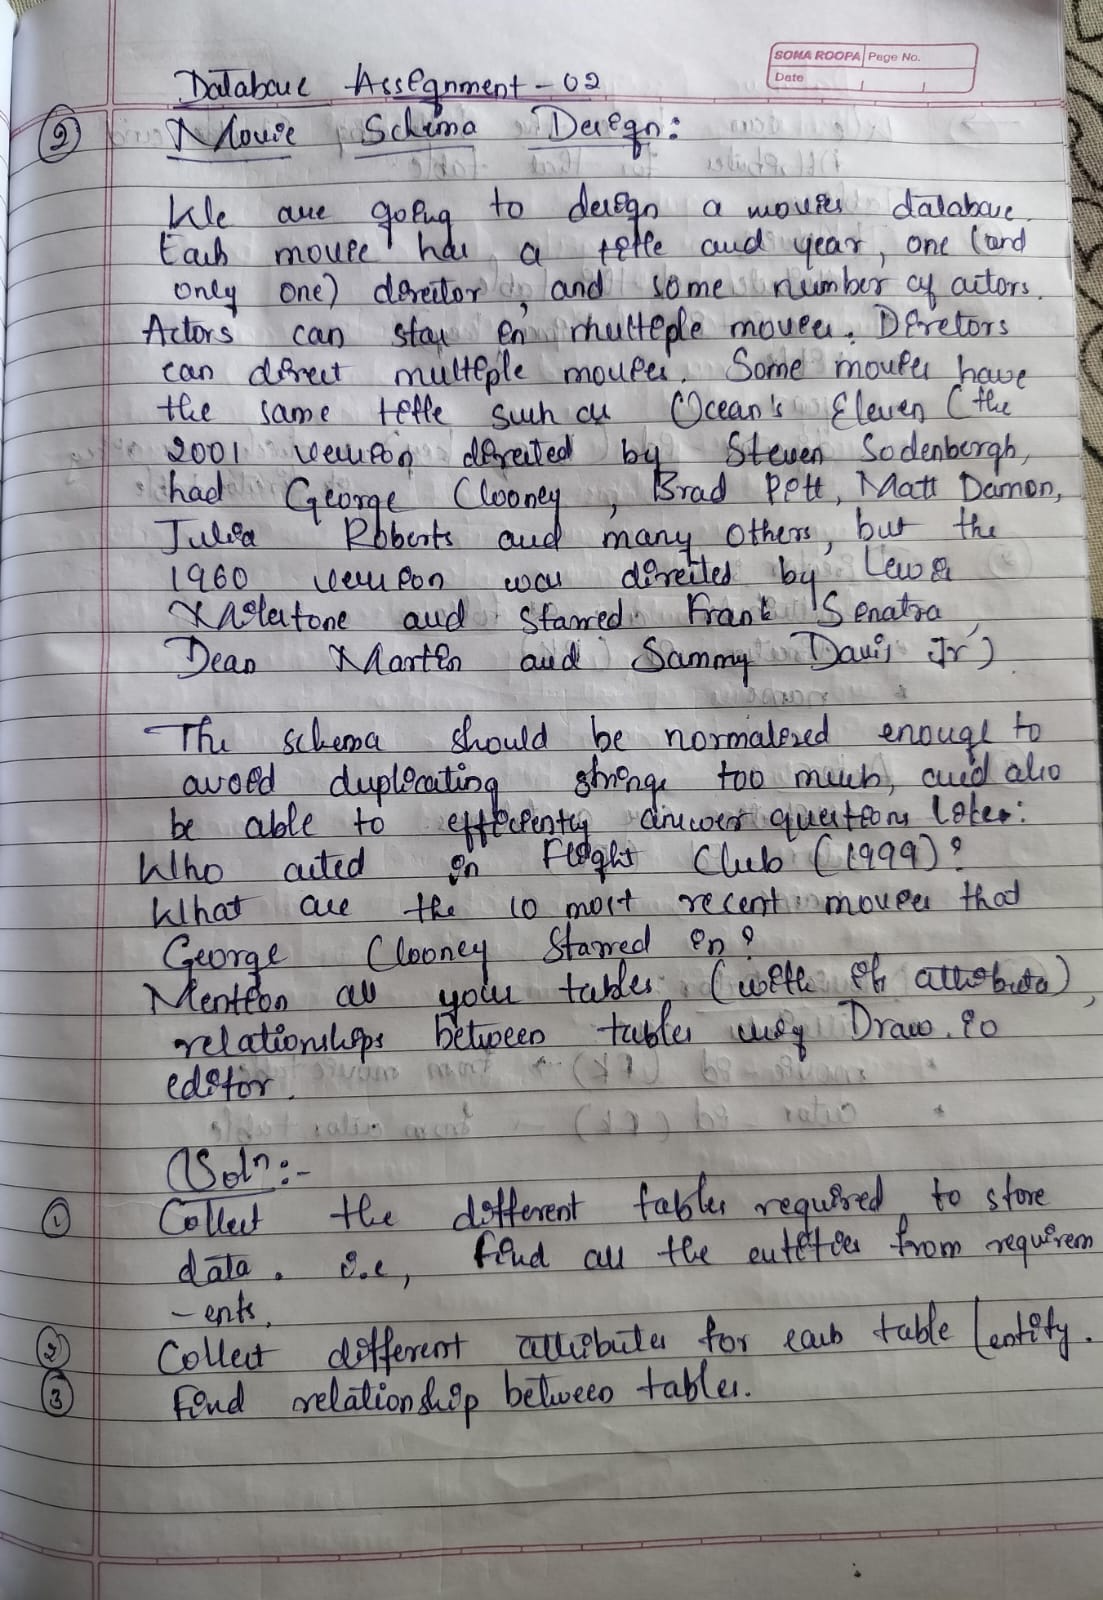 SOMA ROOPA Page No.
Date
Database Assignment - 02
② Movie Schema Design:
We are going to design a movies database.
Each movie has a title and year, one (and
only one) director, and some number of actors.
Actors can star in multiple movies. Diretors
can direct multiple movies. Some movies have
the same title such as Ocean's Eleven (the
2001 version directed by Steven Sodenbergh,
had George Clooney, Brad Pitt, Matt Damon,
Julia Roberts and many others, but the
1960 version was directed by Lewis
Milestone and starred Frank Sinatra,
Dean Martin and Sammy Davis Jr)
The schema should be normalized enough to
avoid duplicating strings too much, and also
be able to efficiently answer questions like:
Who acted in Flight Club (1999)?
What are the 10 most recent movies that
George Clooney Starred in?
Mention all your tables (with it attributes),
relationships between tables using Draw.io
editor.
Solⁿ:-
① Collect the different tables required to store
data. i.e, find all the entities from requirem
-ents.
② Collect different attributes for each table/entity.
③ Find relationship between tables.